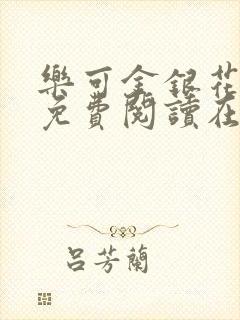 樂可金銀花
免費閱讀在
呂芳蘭